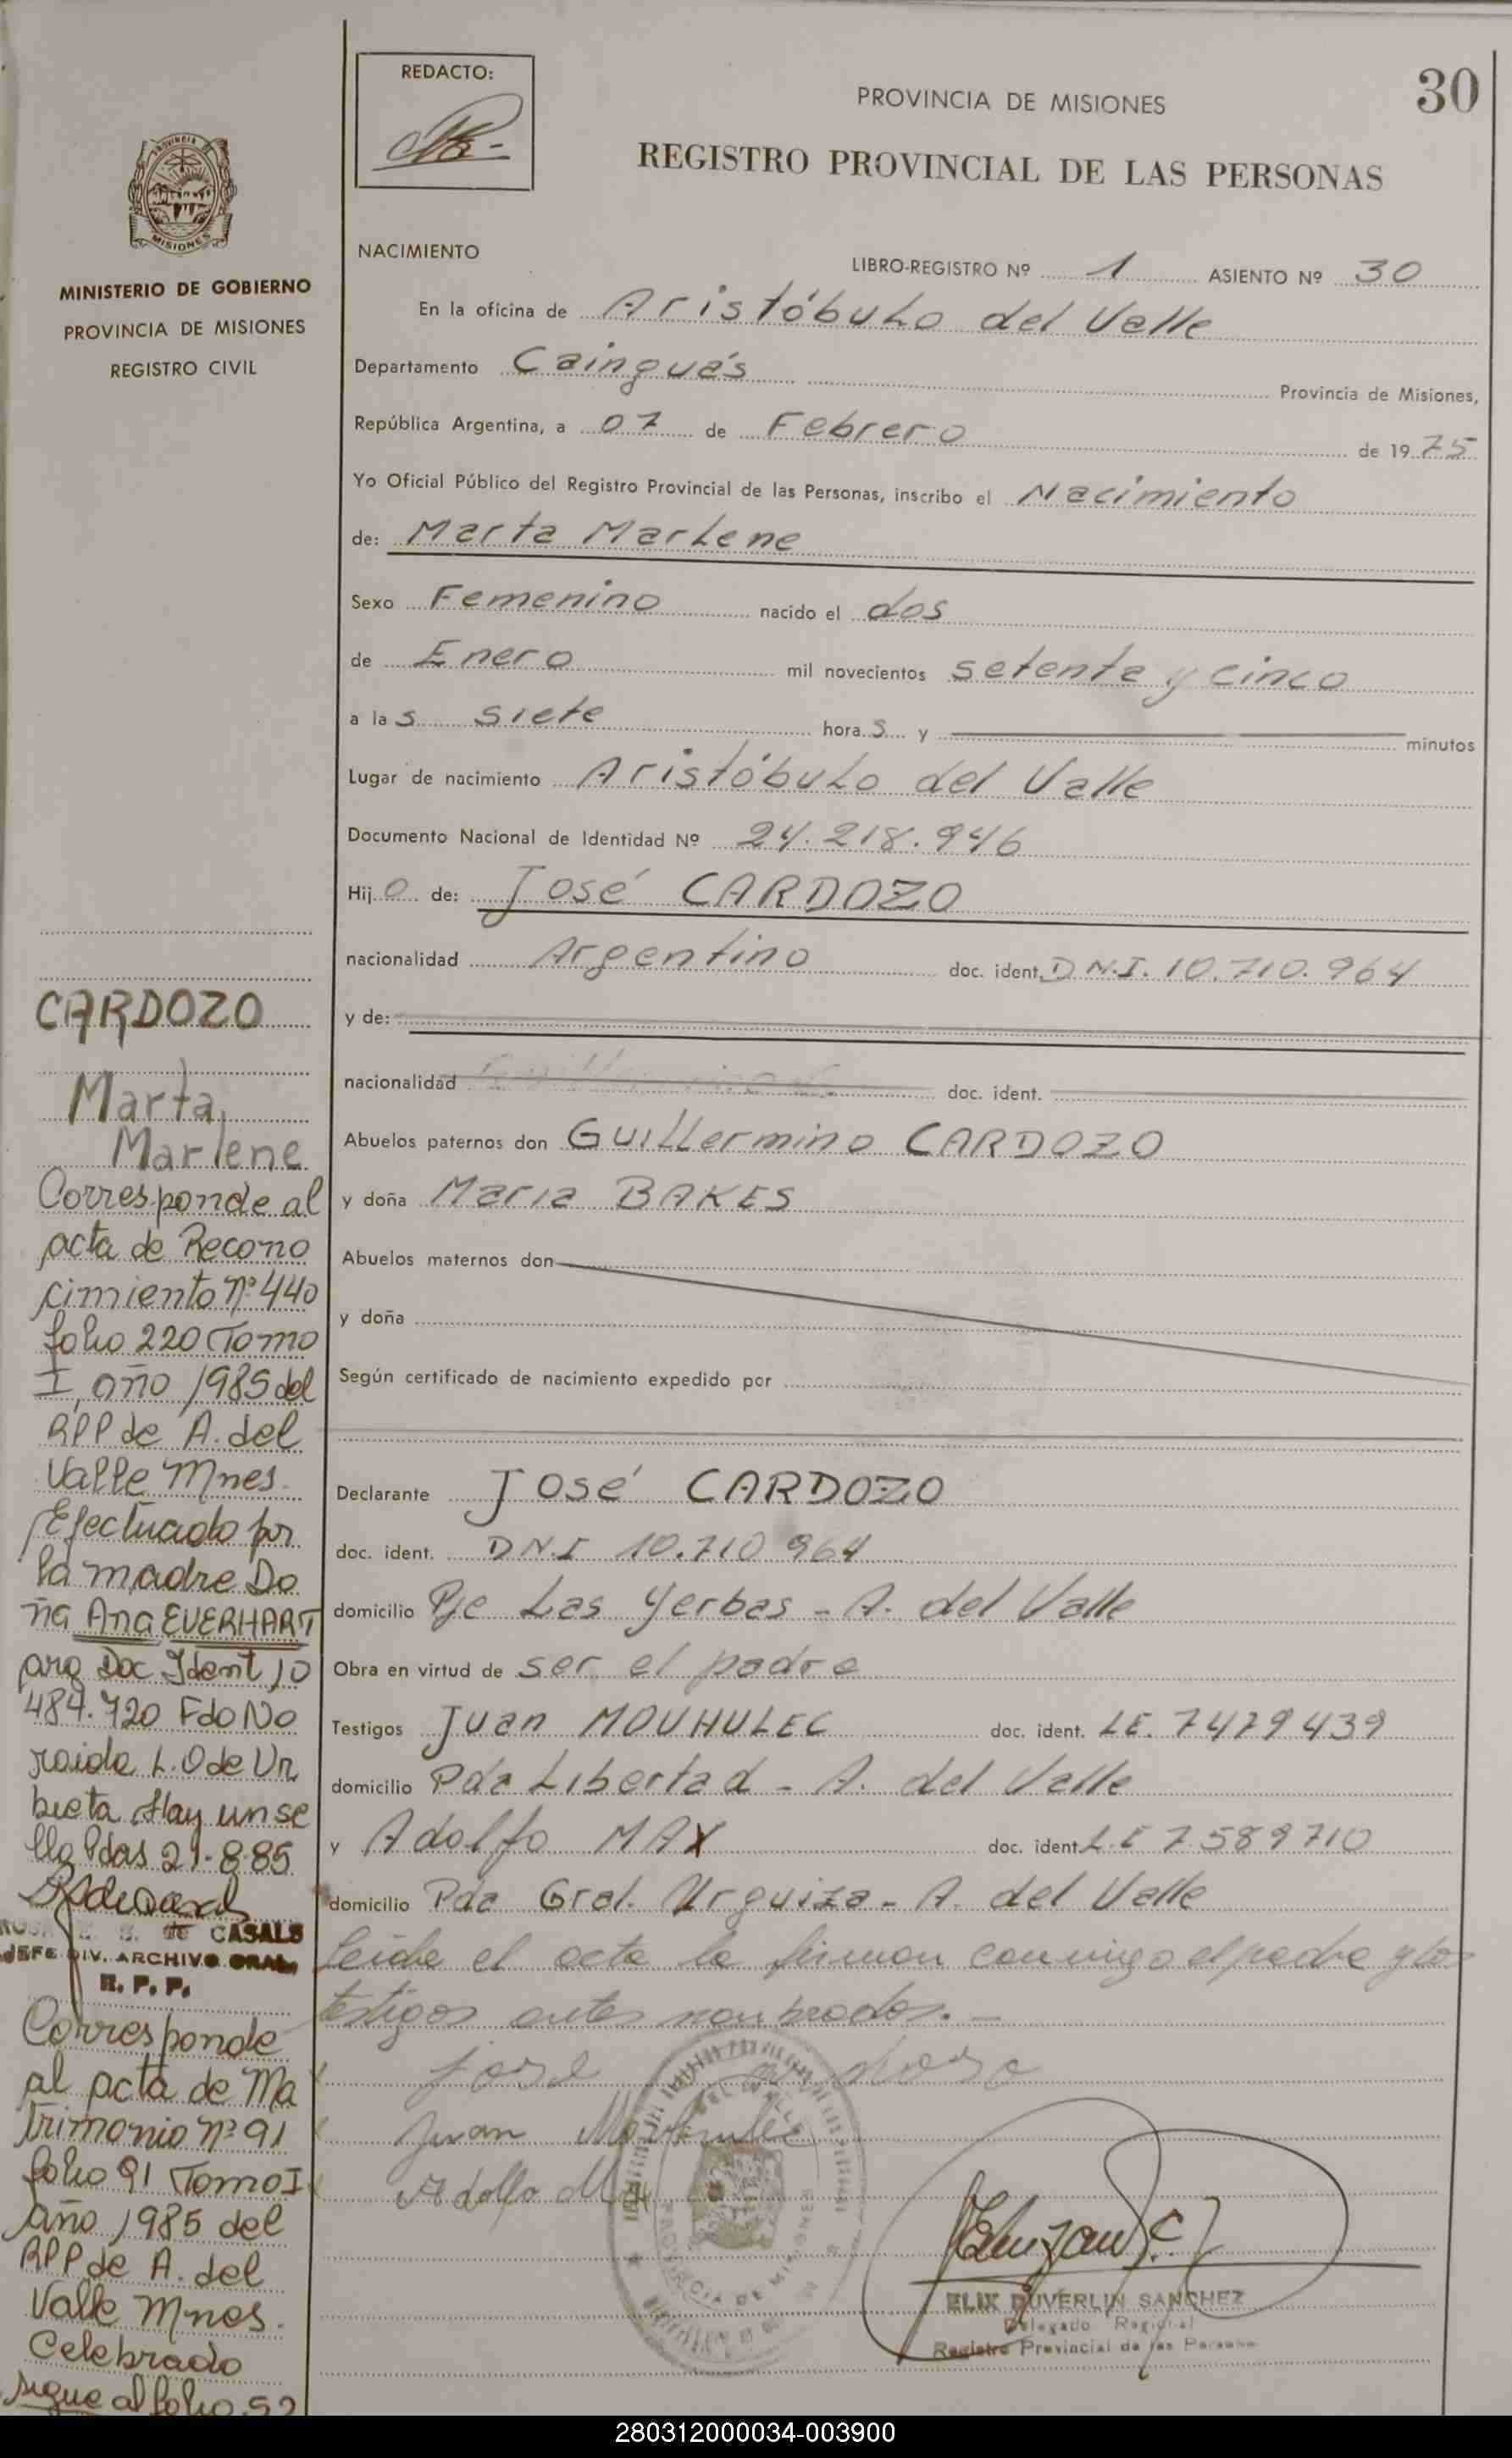 REDACTO:
PROVINCIA DE MISIONES
30
REGISTRO PROVINCIAL DE LAS PERSONAS
PROVINCIA DE
MISIONES
MINISTERIO DE GOBIERNO
PROVINCIA DE MISIONES
REGISTRO CIVIL
NACIMIENTO
LIBRO-REGISTRO Nº 1 ASIENTO Nº 30
En la oficina de Aristóbulo del Valle
Departamento Cainguás Provincia de Misiones,
República Argentina, a 07 de Febrero de 1975
Yo Oficial Público del Registro Provincial de las Personas, inscribo el Nacimiento
de: Marta Marlene
Sexo Femenino nacido el dos
de Enero mil novecientos setenta y cinco
a las siete horas y minutos
Lugar de nacimiento Aristóbulo del Valle
Documento Nacional de Identidad Nº 24.218.946
Hijo de: José CARDOZO
nacionalidad Argentino doc. ident. D.N.I. 10.710.964
y de:
nacionalidad doc. ident.
Abuelos paternos don Guillermino CARDOZO
y doña Maria BAKES
Abuelos maternos don
y doña
Según certificado de nacimiento expedido por
Declarante José CARDOZO
doc. ident. DNI 10.710 964
domicilio Pje Las Yerbas - A. del Valle
Obra en virtud de ser el padre
Testigos Juan MOUHULEC doc. ident. LE. 7479439
domicilio Pda Libertad - A. del Valle
y Adolfo MAX doc. ident. L.E 7589710
domicilio Pda Gral. Urquiza - A. del Valle
Leida el acta la firman conmigo el padre y los
testigos antes nombrados. -
José
Juan
Adolfo
ELIX DUVERLIN SANCHEZ
Delegado Regional
Registro Provincial de las Personas
CARDOZO
Marta,
Marlene
Corresponde al
acta de Recono
cimiento nº 440
folio 220 Tomo
I, año 1985 del
RPP de A. del
Valle Mnes.
Efectuado por
la madre Do
ña Ana EVERHART
arg Doc Ident 10
484.720 Fdo No
raida L. O de Ur
bieta. Hay un se
llo Pdas 21-8-85
DE CASALS
JEFE DIV. ARCHIVO GRAL.
R. P. P.
Corresponde
al acta de Ma
trimonio nº 91
folio 91 Tomo I
año 1985 del
RPP de A. del
Valle Mnes.
Celebrado
sigue al folio 52
280312000034-003900